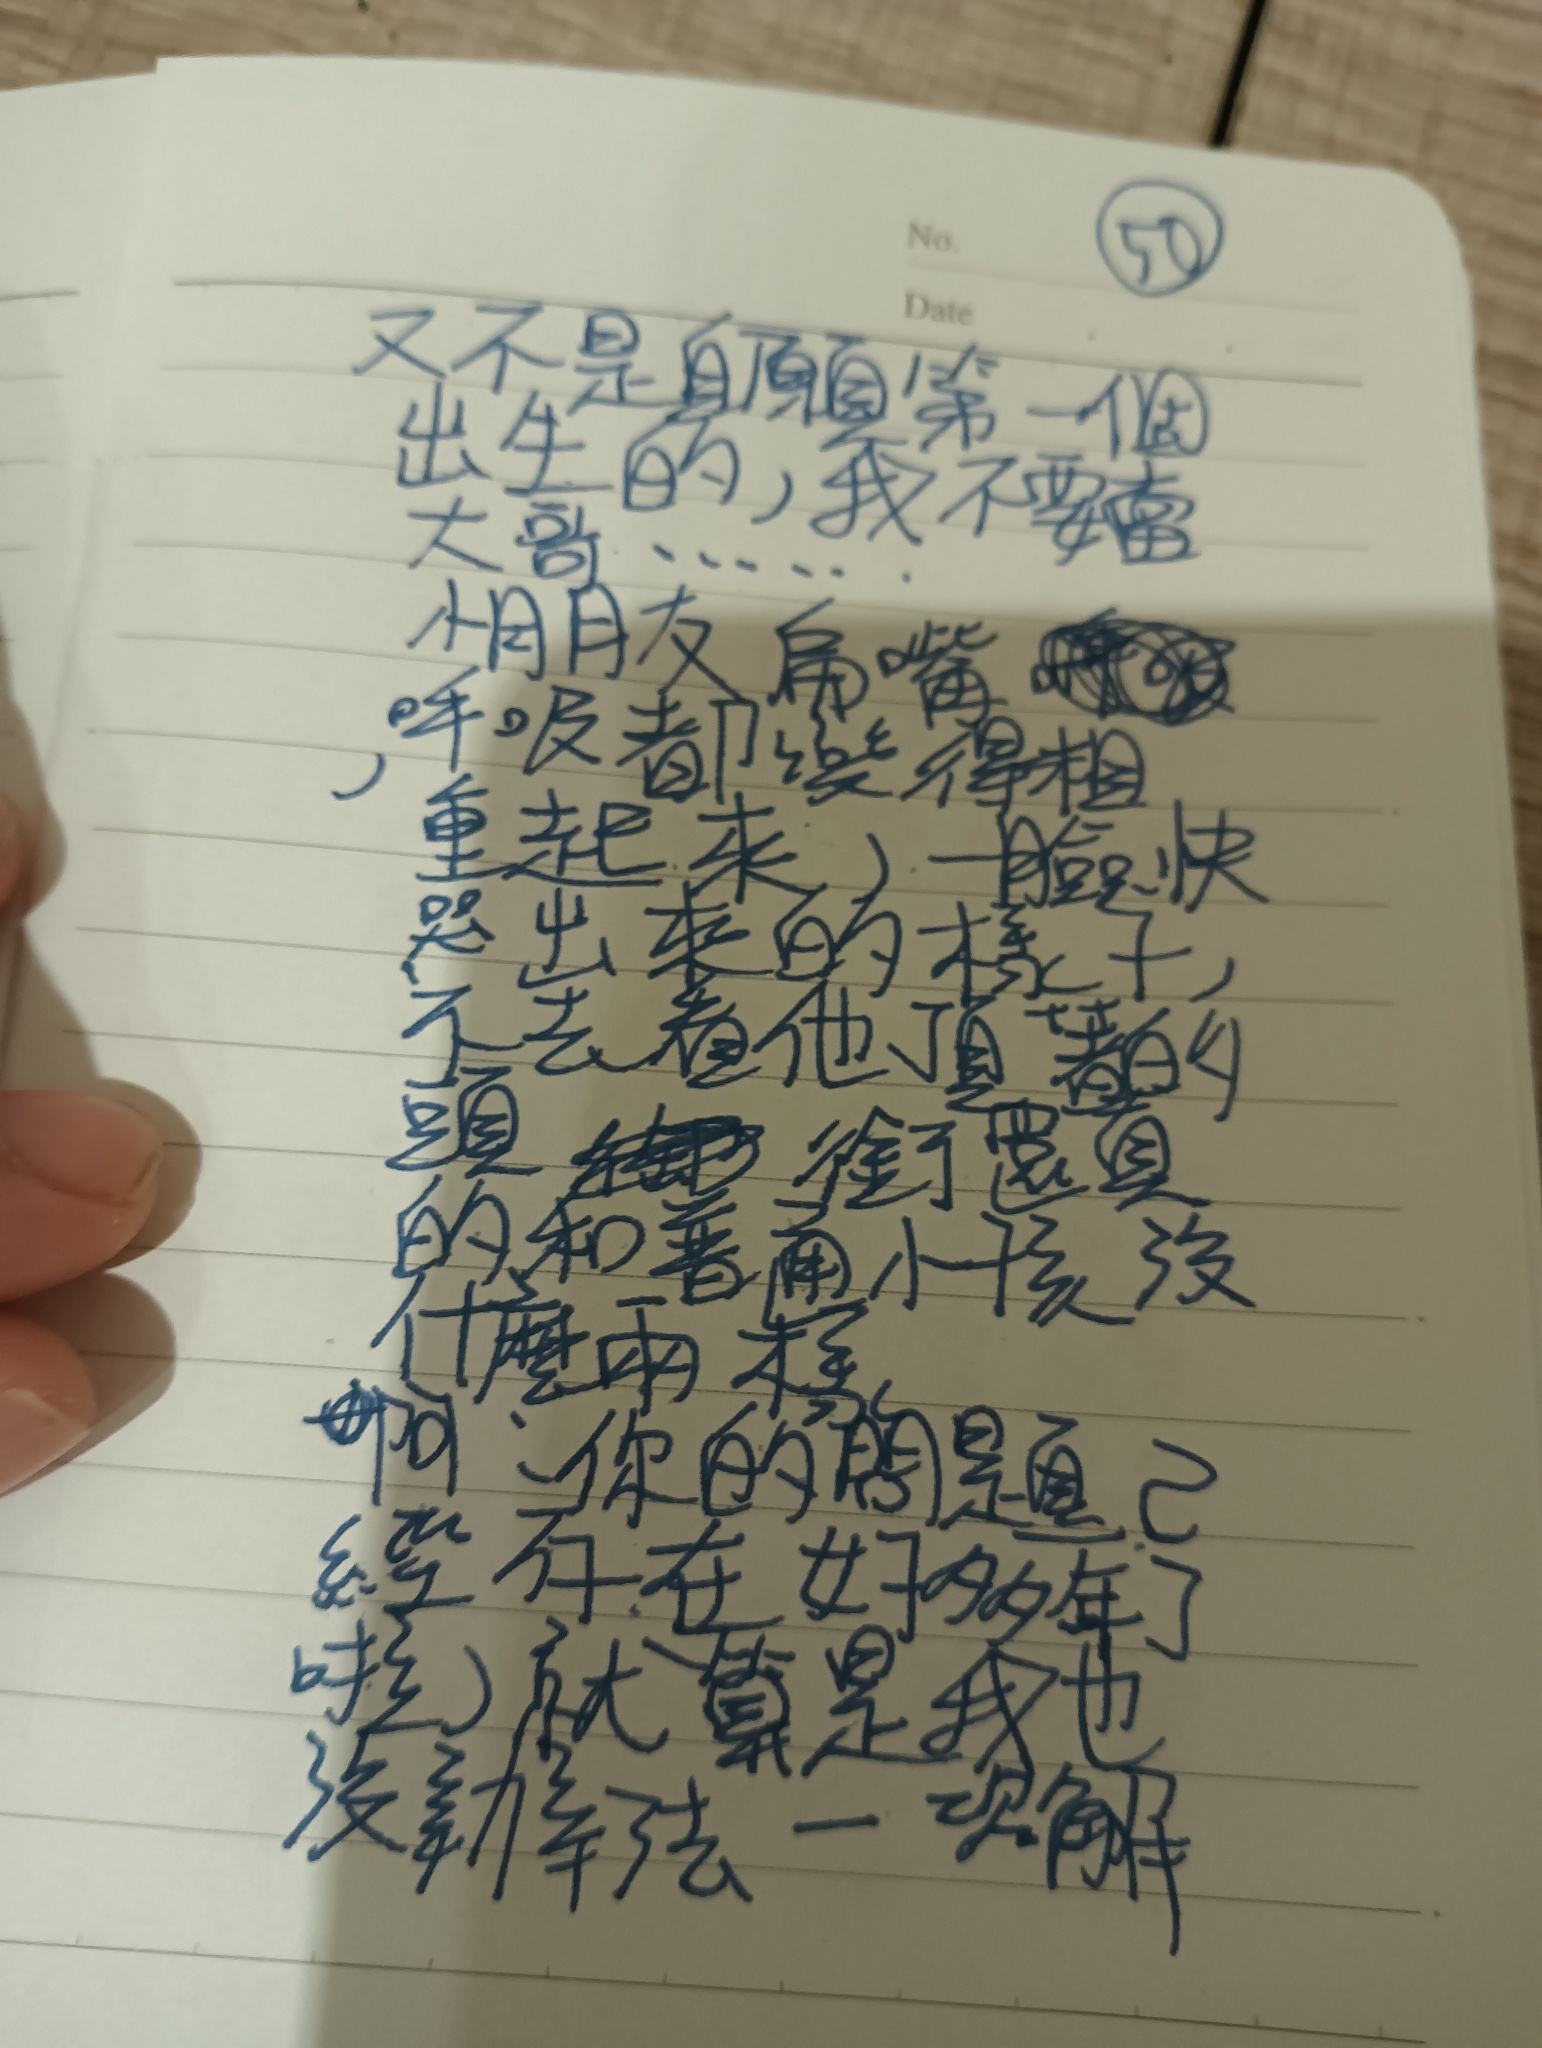 No. 50
Date
又不是自願第一個
出生的,我不要當
大哥......
小朋友扁嘴
,呼吸都變得粗
重起來,一臉快
哭出來的樣子,
不去看他頂著的
頭銜還真
的和普通小孩沒
什麼兩樣。
啊、你的問題已
經存在好多年了
啦,就算是我也
沒辦法一次解